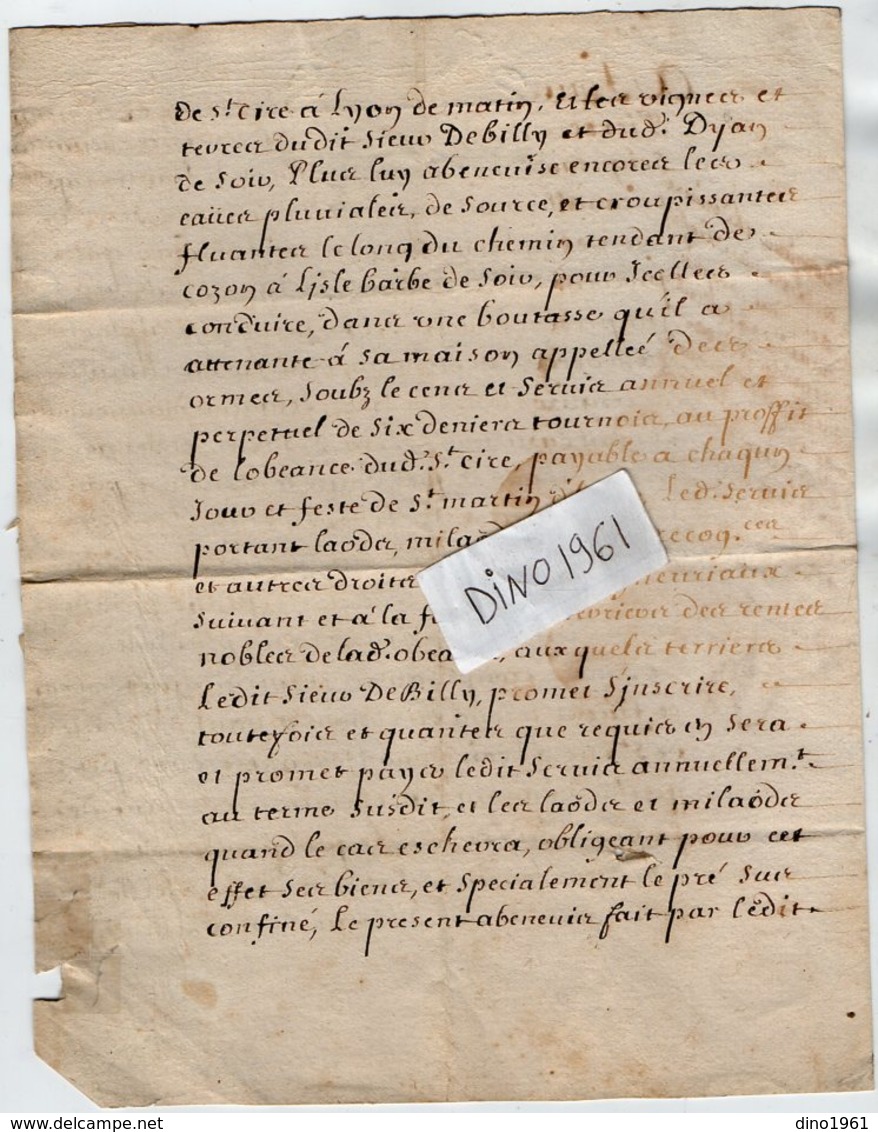 de s.t cire á Lyon de matin, et les vignes et
terres dudit sieur DeBilly et dud. Dyan
de soir, Plus luy abenevise encores les
eaües pluviales, de source, et croupissantes
fluantes le long du chemin tendant de
cozon á Lisle barbe de soir, pour Jcelles
conduire, dans une boutasse qu'il a
attenante á sa maison appelleé des
ormes, soubz le cens et servis annuel et
perpetuel de six deniers tournois, au proffit
de lobeance dud. s.t cire, payable a chaqun
Jour et feste de s.t martin Led. servis
portant laods, recog.ces
et autres droits
suivant et á la des rentes
nobles de lad. aux quels terriers
Ledit sieur DeBilly, promet s'jnscrire,
toutefois et quantes que requis en sera
et promet payer ledit servis annuellem.t
au terme susdit, et les laods et milaods
quand le cas eschevra, obligeant pour cet
effet ses biens, et specialement le pré sus
confiné, Le present abenevis fait par ledit
DINO1961
dino1961